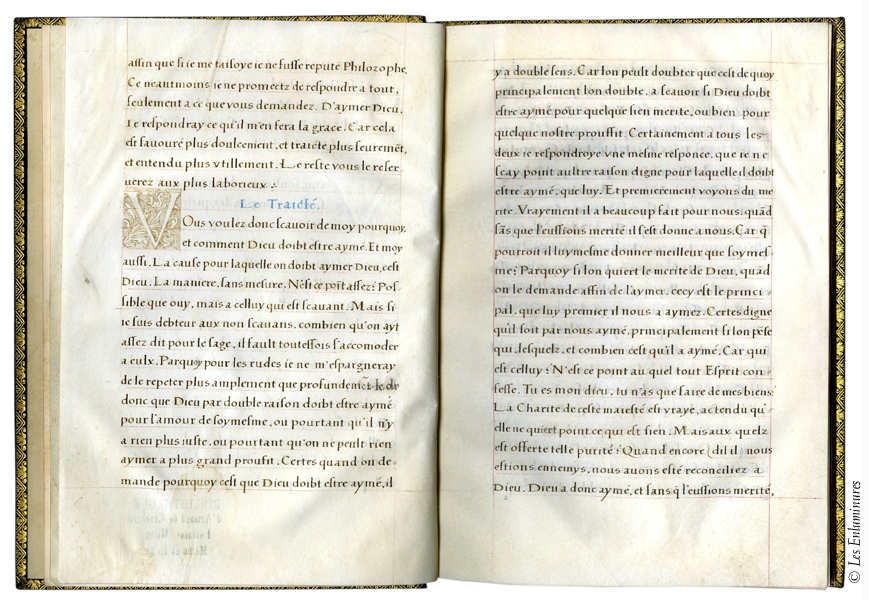 affin que si ie me taisoye ie ne fusse repute Philozophe.
Ce neautmoins ie ne promectz de respondre a tout,
seulement a ce que vous demandez. D'aymer Dieu,
Ie respondray ce qu'il m'en fera la grace. Car cela
est sauouré plus doulcement, et traicte plus seuremēt,
et entendu plus vtillement. Le reste vous le reser
uerez aux plus laborieux
Le Traicté.
Vous voulez donc scauoir de moy pourquoy,
et comment Dieu doibt estre aymé. Et moy
aussi. La cause pour laquelle on doibt aymer Dieu, cest
Dieu. La maniere, sans mesure. N'ēst ce poīt assez? Pos
sible que ouy, mais a celluy qui est scauant. Mais si
ie suis debteur aux non scauans, combien qu'on ayt
assez dit pour le sage, il fault touteffois s'accomoder
a eulx. Parquoy pour les rudes ie ne m'espargneray
de le repeter plus amplement que profundemēt. Ie dy
donc que Dieu par double raison doibt estre aymé
pour l'amour de soymesme, ou pourtant qu'il n'y
a rien plus iuste, ou pourtant qu'on ne peult rien
aymer a plus grand proufit. Certes quand on de-
mande pourquoy cest que Dieu doibt estre aymé, il
y a double sens. Car lon peult doubter que cest de quoy
principalement lon double, a scauoir si Dieu doibt
estre aymé pour quelque sien merite, ou bien pour
quelque nostre prouffit. Certainement a tous les-
deux ie respondroye vne mesme responce, que ie ne
scay point aultre raison digne pour laquelle il doibt
estre aymé, que luy. Et premierement voyons du me
rite. Vrayement il a beaucoup fait pour nous, quād
sās que l'eussions merité il s'est donne a nous. Car q̄
pourroit il luymesme donner meilleur que soymes-
me? Parquoy si lon quiert le merite de Dieu, quād
on le demande affin de l'aymer, cecy est le princi
pal, que luy premier il nous a aymez. Certes digne
qu'il soit par nous aymé, principalement si lon pēse
qui, lesquelz, et combien cest qu'il a aymé. Car qui
est celluy? N'est ce point au quel tout Esprit con-
fesse. Tu es mon dieu, tu n'as que faire de mes biens?
La Charité de ceste maiesté est vraye, actendu qu'
elle ne quiert point ce qui est sien. Mais aux quelz
est offerte telle purité? Quand encore (dil il) nous
estions ennemys, nous auons esté reconciliez à
Dieu. Dieu a donc aymé, et sans q̄ l'eussions merité,
© Les Enluminures